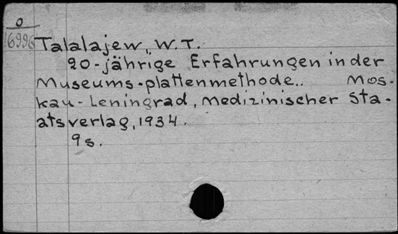 O
16996
Talalajew, W.T.
20-jährige Erfahrungen in der
Museums-plattenmethode.. Mos-
kau-Leningrad, Medizinischer Sta-
atsverlag, 1934.
9s.